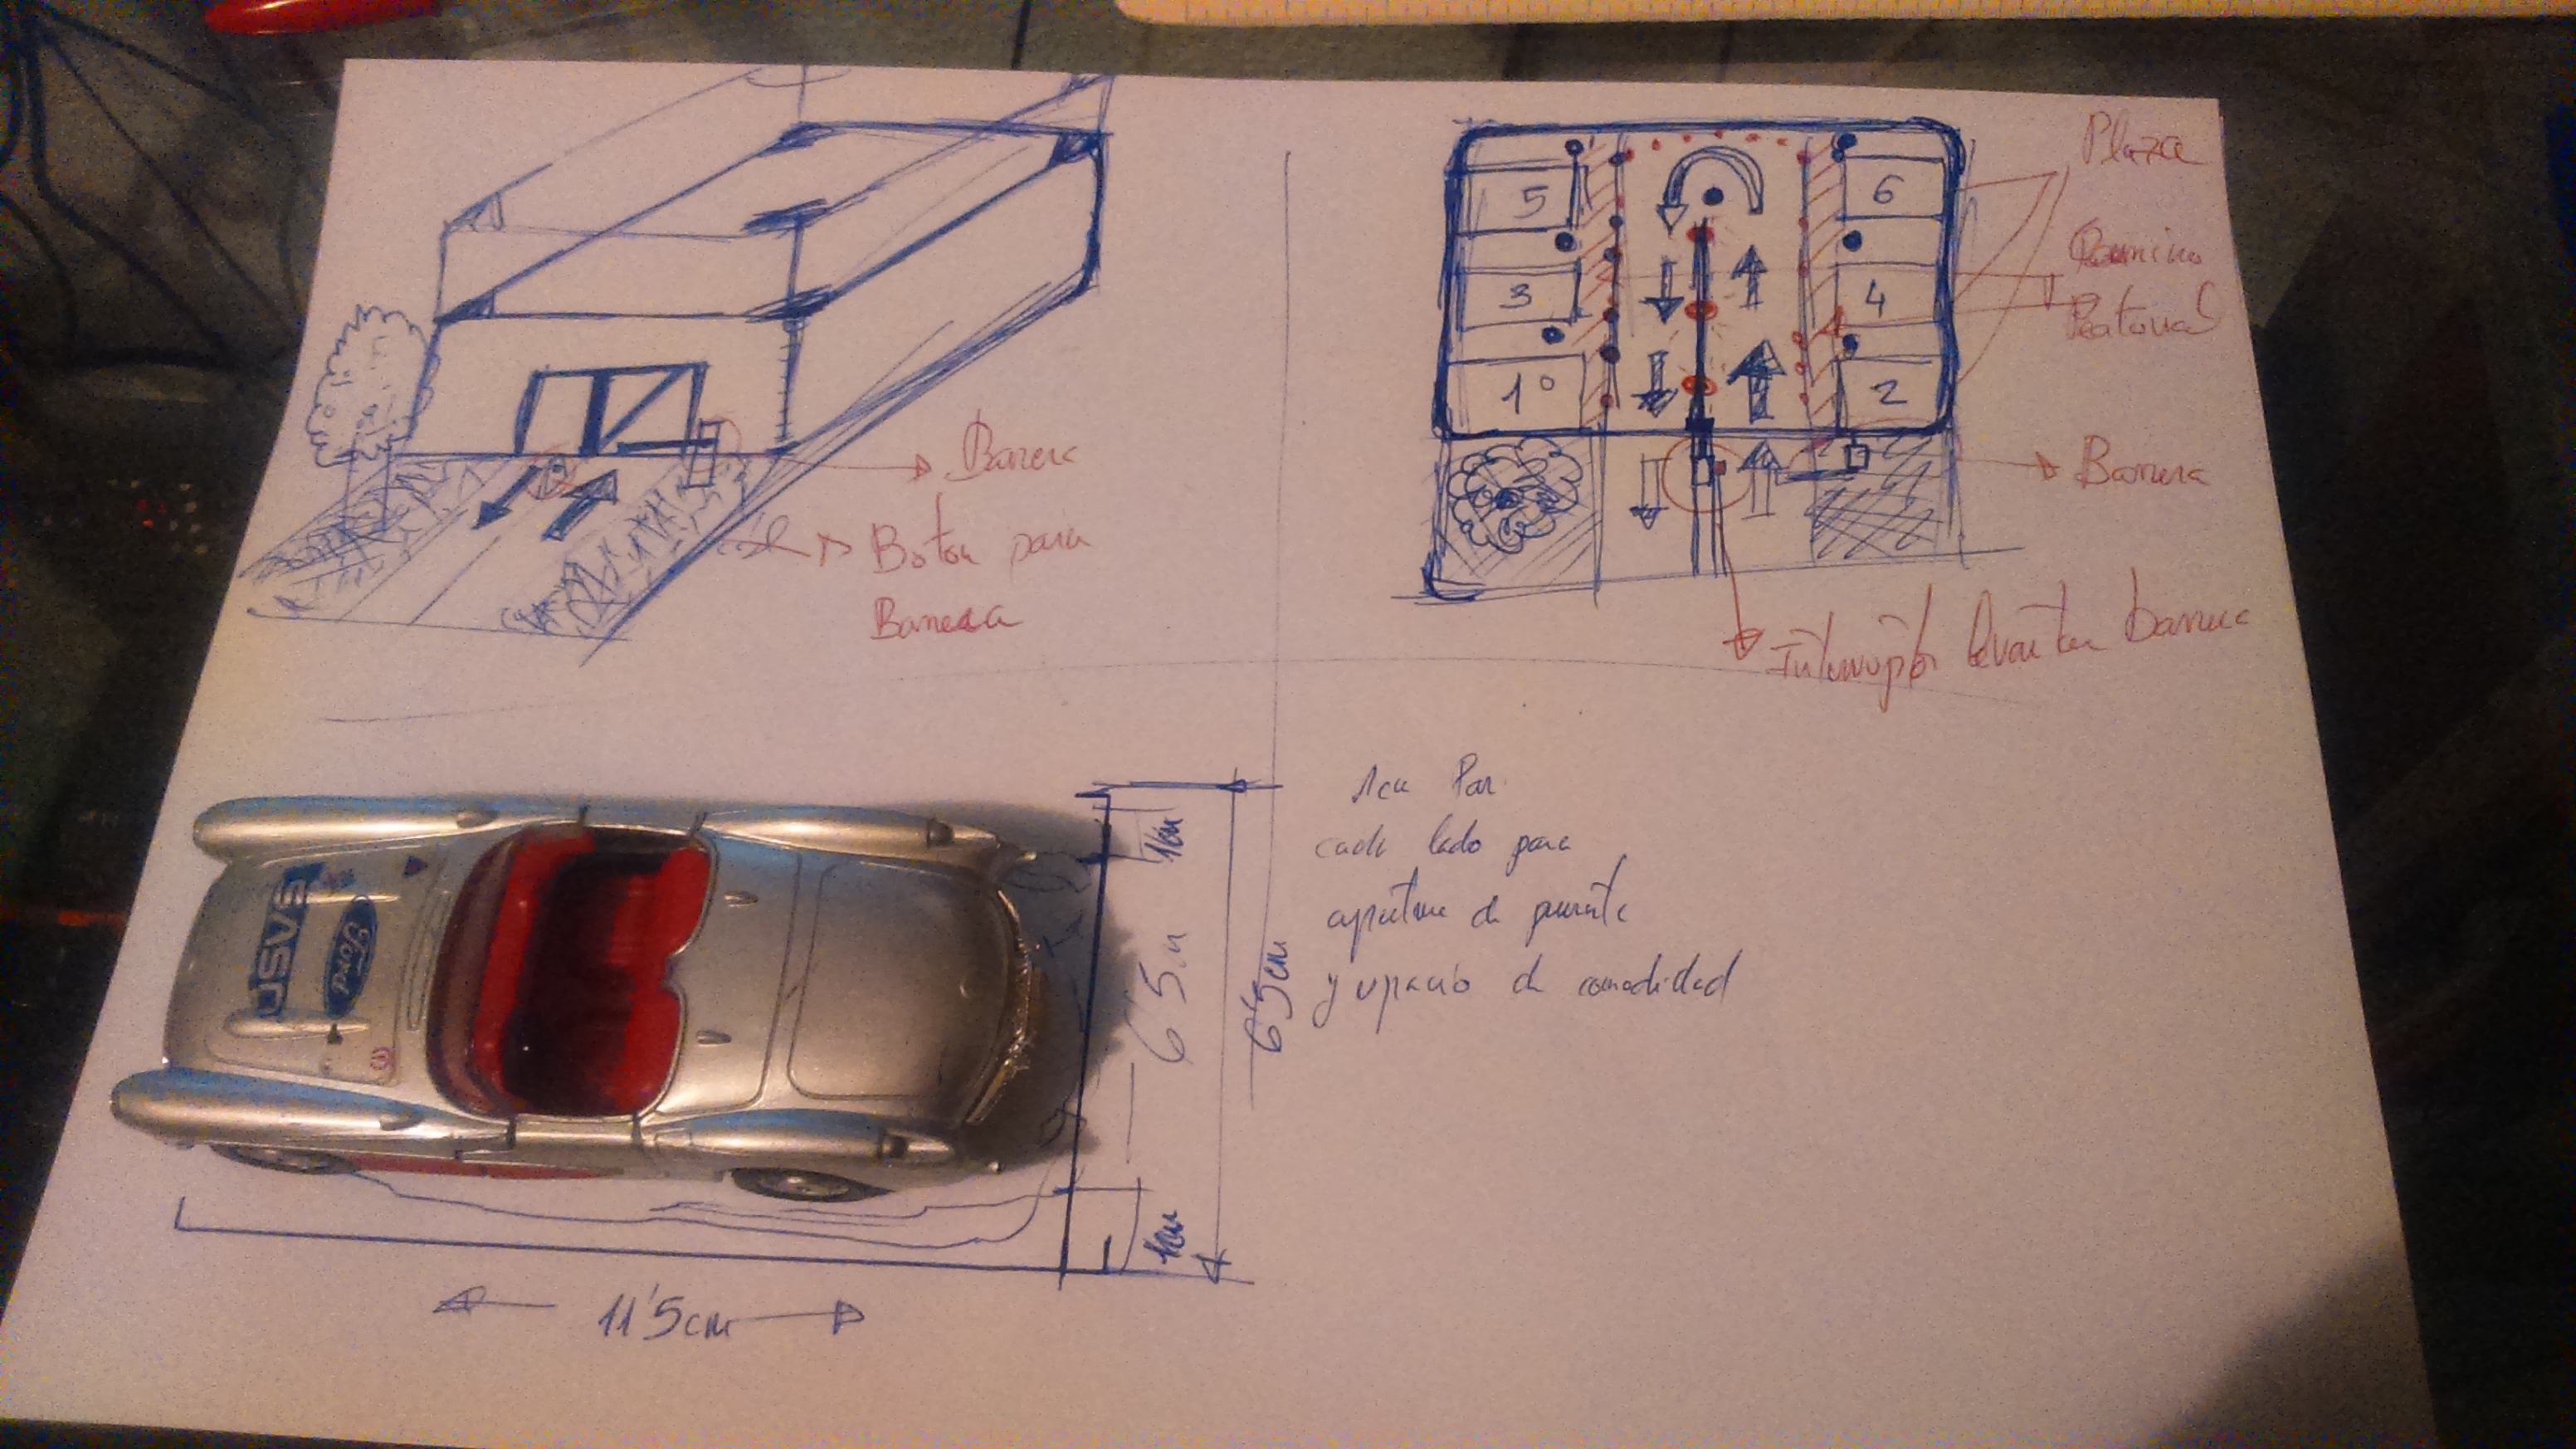 Barera
Boton para
Barrera
5
6
3
4
1º
2
Plaza
Camino
Peatonal
Barrera
Interruptor levantar barrera
EASD
Ford
1cm
6'5cm
1cm
6'5cm
11'5cm
1cm Por
cada lado para
apertura de puerta
y espacio de comodidad